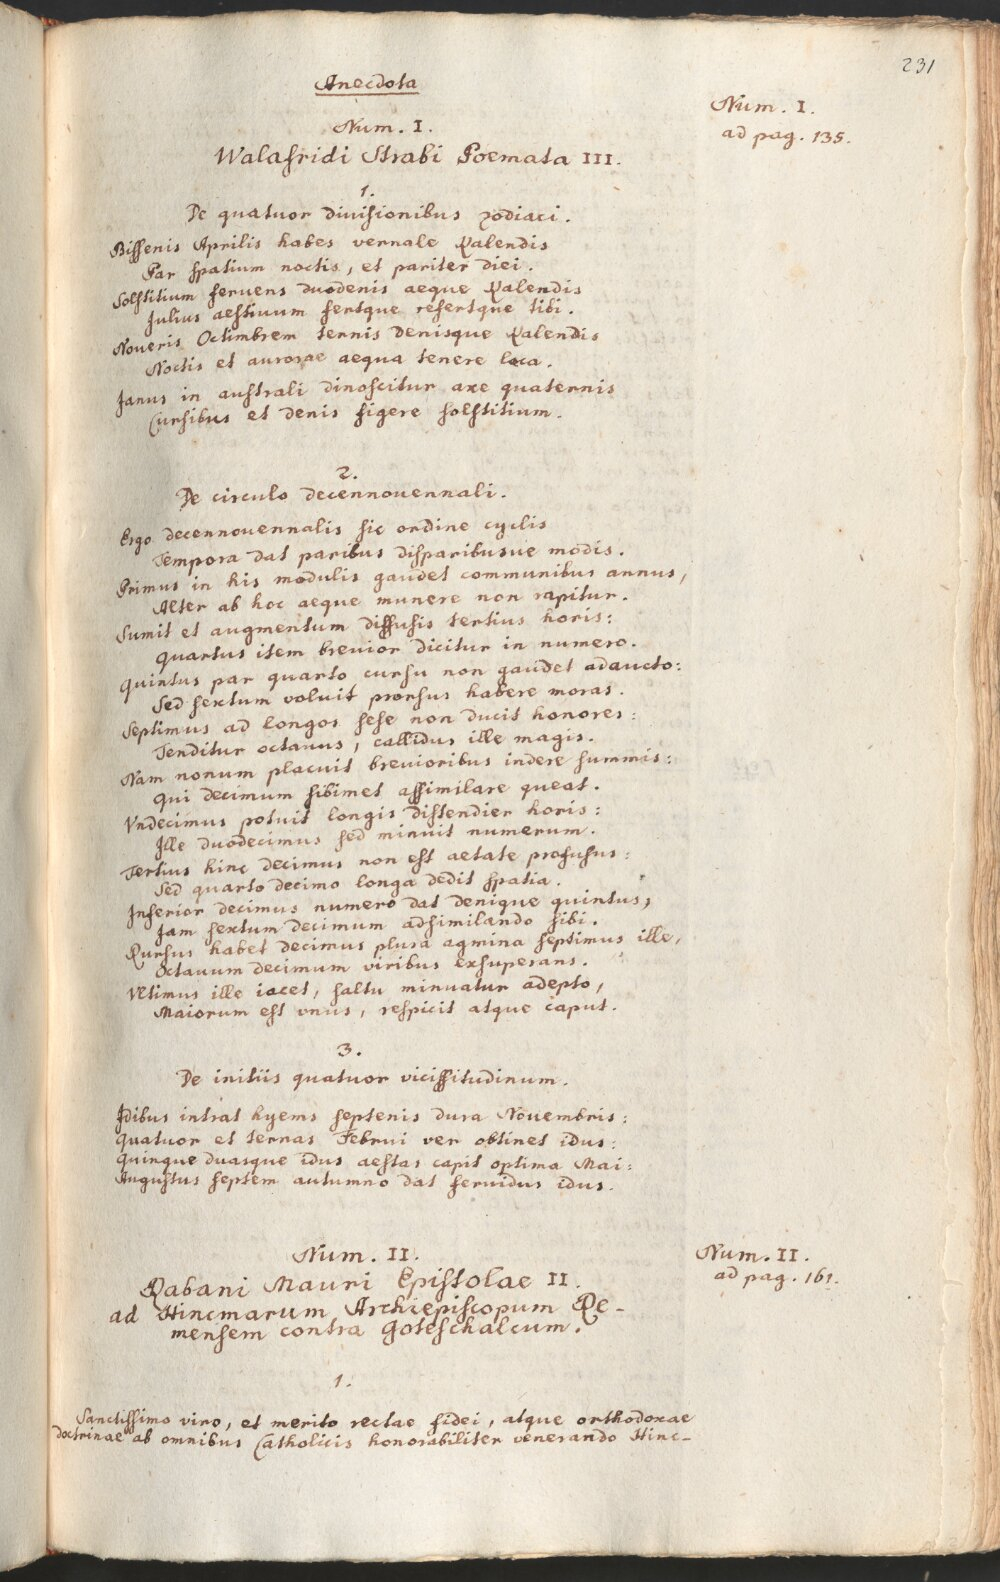 231
Anecdota
Num. I.
ad pag. 135.
Num. I.
Walafridi Strabi Poemata III.
1.
De quatuor diuisionibus zodiaci.
Bissenis Aprilis habes vernale Kalendis
Par spatium noctis, et pariter diei.
Solstitium feruens duodenis aeque Kalendis
Julius aestiuum fertque refertque tibi.
Noueris Octimbrem ternis denisque Kalendis
Noctis et aurorae aequa tenere loca.
Janus in australi dinoscitur axe quaternis
Cursibus et denis figere solstitium.
2.
De circulo decennouennali.
Ergo decennouennalis sic ordine cyclis
Tempora dat paribus disparibusue modis.
Primus in his modulis gaudet communibus annus,
Alter ab hoc aeque munere non rapitur.
Sumit et augmentum diffusis tertius horis:
Quartus item breuior dicitur in numero.
Quintus par quarto cursu non gaudet adaucto:
Sed sextum voluit prorsus habere moras.
Septimus ad longos sese non ducit honores:
Tenditur octauus, callidus ille magis.
Nam nonum placuit breuioribus indere summis:
Qui decimum sibimet assimilare queat.
Vndecimus potuit longis distendier horis:
Ille duodecimus sed minuit numerum.
Tertius hinc decimus non est aetate profusus:
Sed quarto decimo longa dedit spatia.
Inferior decimus numero dat denique quintus,
Jam sextum decimum adsimilando sibi.
Rursus habet decimus plura agmina septimus ille,
Octauum decimum viribus exsuperans.
Vltimus ille iacet, saltu minuatur adepto,
Maiorum est vnus, respicit atque caput.
3.
De initiis quatuor vicissitudinum.
Idibus intrat hyems septenis dura Nouembris:
Quatuor et ternas Februi ver obtinet idus:
Quinque duasque idus aestas capit optima Mai:
Augustus septem autumno dat feruidus idus.
Num. II.
ad pag. 161.
Num. II.
Rabani Mauri Epistolae II.
ad Hincmarum Archiepiscopum Re-
mensem contra Goteschalcum.
1.
Sanctissimo viro, et merito rectae fidei, atque orthodoxae
doctrinae ab omnibus Catholicis honorabiliter venerando Hinc-